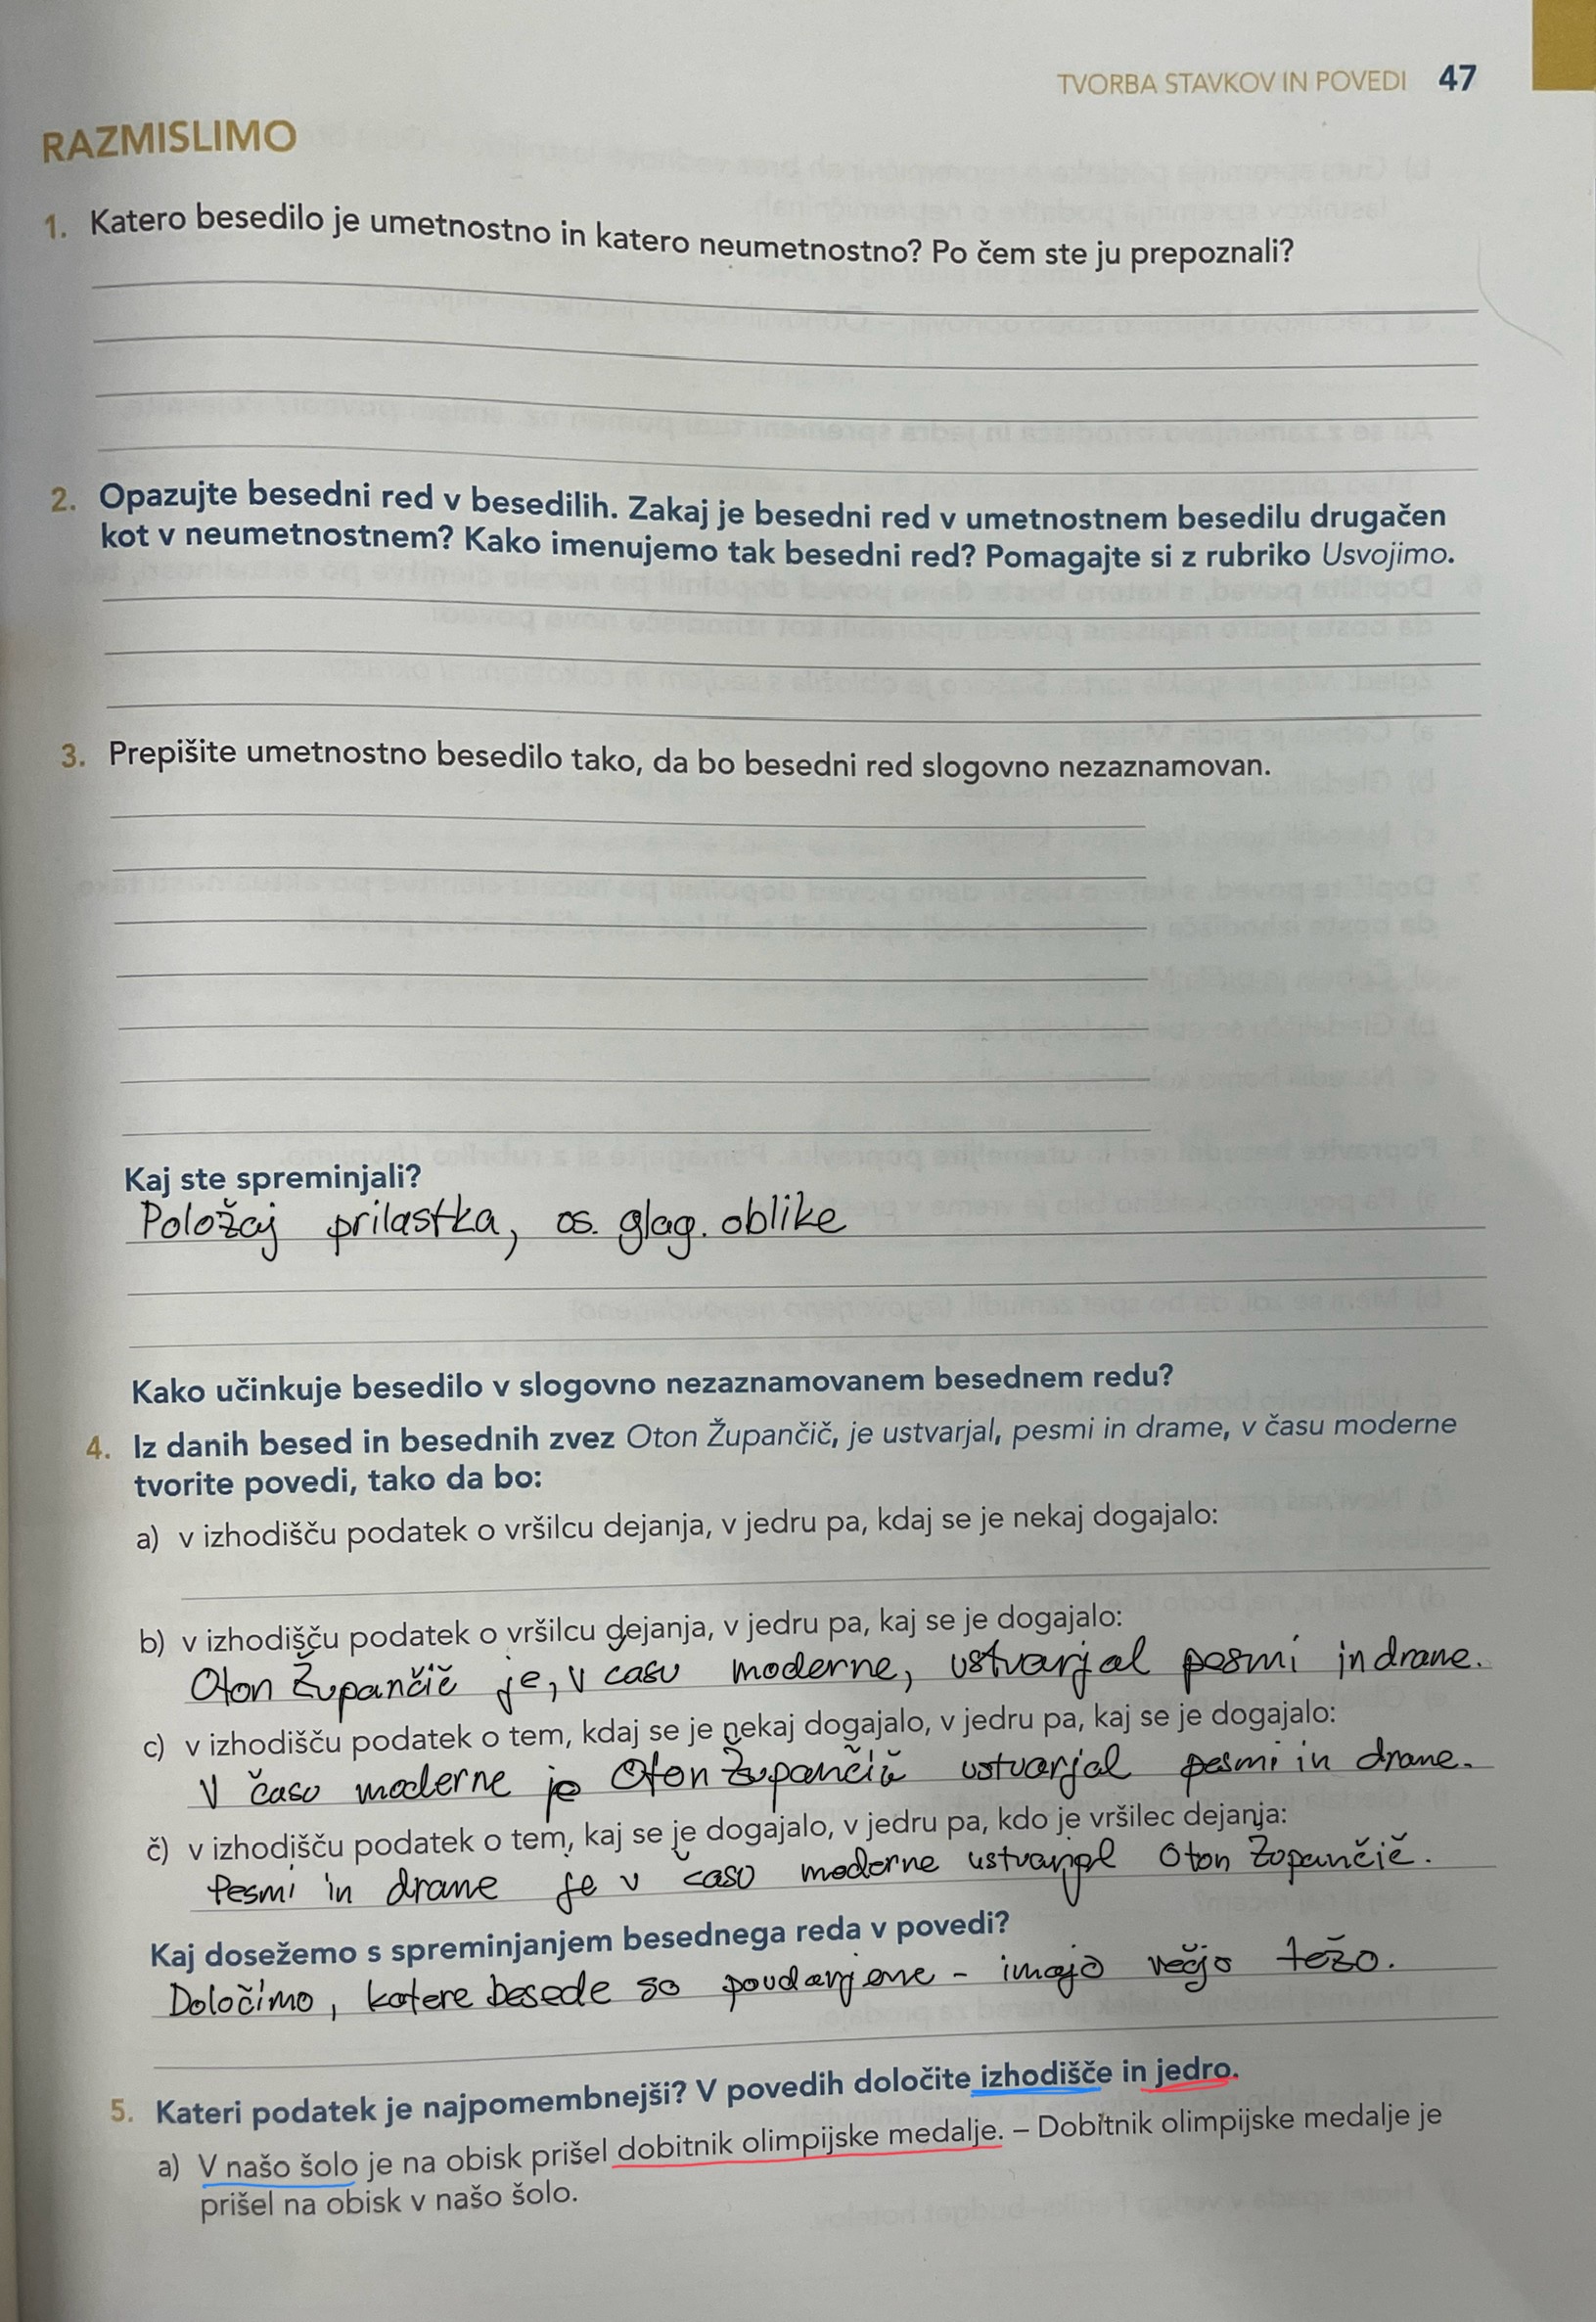 TVORBA STAVKOV IN POVEDI 47
RAZMISLIMO
1. Katero besedilo je umetnostno in katero neumetnostno? Po čem ste ju prepoznali?
2. Opazujte besedni red v besedilih. Zakaj je besedni red v umetnostnem besedilu drugačen
kot v neumetnostnem? Kako imenujemo tak besedni red? Pomagajte si z rubriko Usvojimo.
3. Prepišite umetnostno besedilo tako, da bo besedni red slogovno nezaznamovan.
Kaj ste spreminjali?
Položaj prilastka, os. glag. oblike
Kako učinkuje besedilo v slogovno nezaznamovanem besednem redu?
4. Iz danih besed in besednih zvez Oton Župančič, je ustvarjal, pesmi in drame, v času moderne
tvorite povedi, tako da bo:
a) v izhodišču podatek o vršilcu dejanja, v jedru pa, kdaj se je nekaj dogajalo:
b) v izhodišču podatek o vršilcu dejanja, v jedru pa, kaj se je dogajalo:
Oton Župančič je, v casu moderne, ustvarjal pesmi in drame.
c) v izhodišču podatek o tem, kdaj se je nekaj dogajalo, v jedru pa, kaj se je dogajalo:
V času moderne je Oton Župančič ustvarjal pesmi in drame.
č) v izhodišču podatek o tem, kaj se je dogajalo, v jedru pa, kdo je vršilec dejanja:
Pesmi in drame je v času moderne ustvarjal Oton Župančič.
Kaj dosežemo s spreminjanjem besednega reda v povedi?
Določimo, katere besede so poudarjene - imajo večjo težo.
5. Kateri podatek je najpomembnejši? V povedih določite izhodišče in jedro.
a) V našo šolo je na obisk prišel dobitnik olimpijske medalje. – Dobitnik olimpijske medalje je
prišel na obisk v našo šolo.